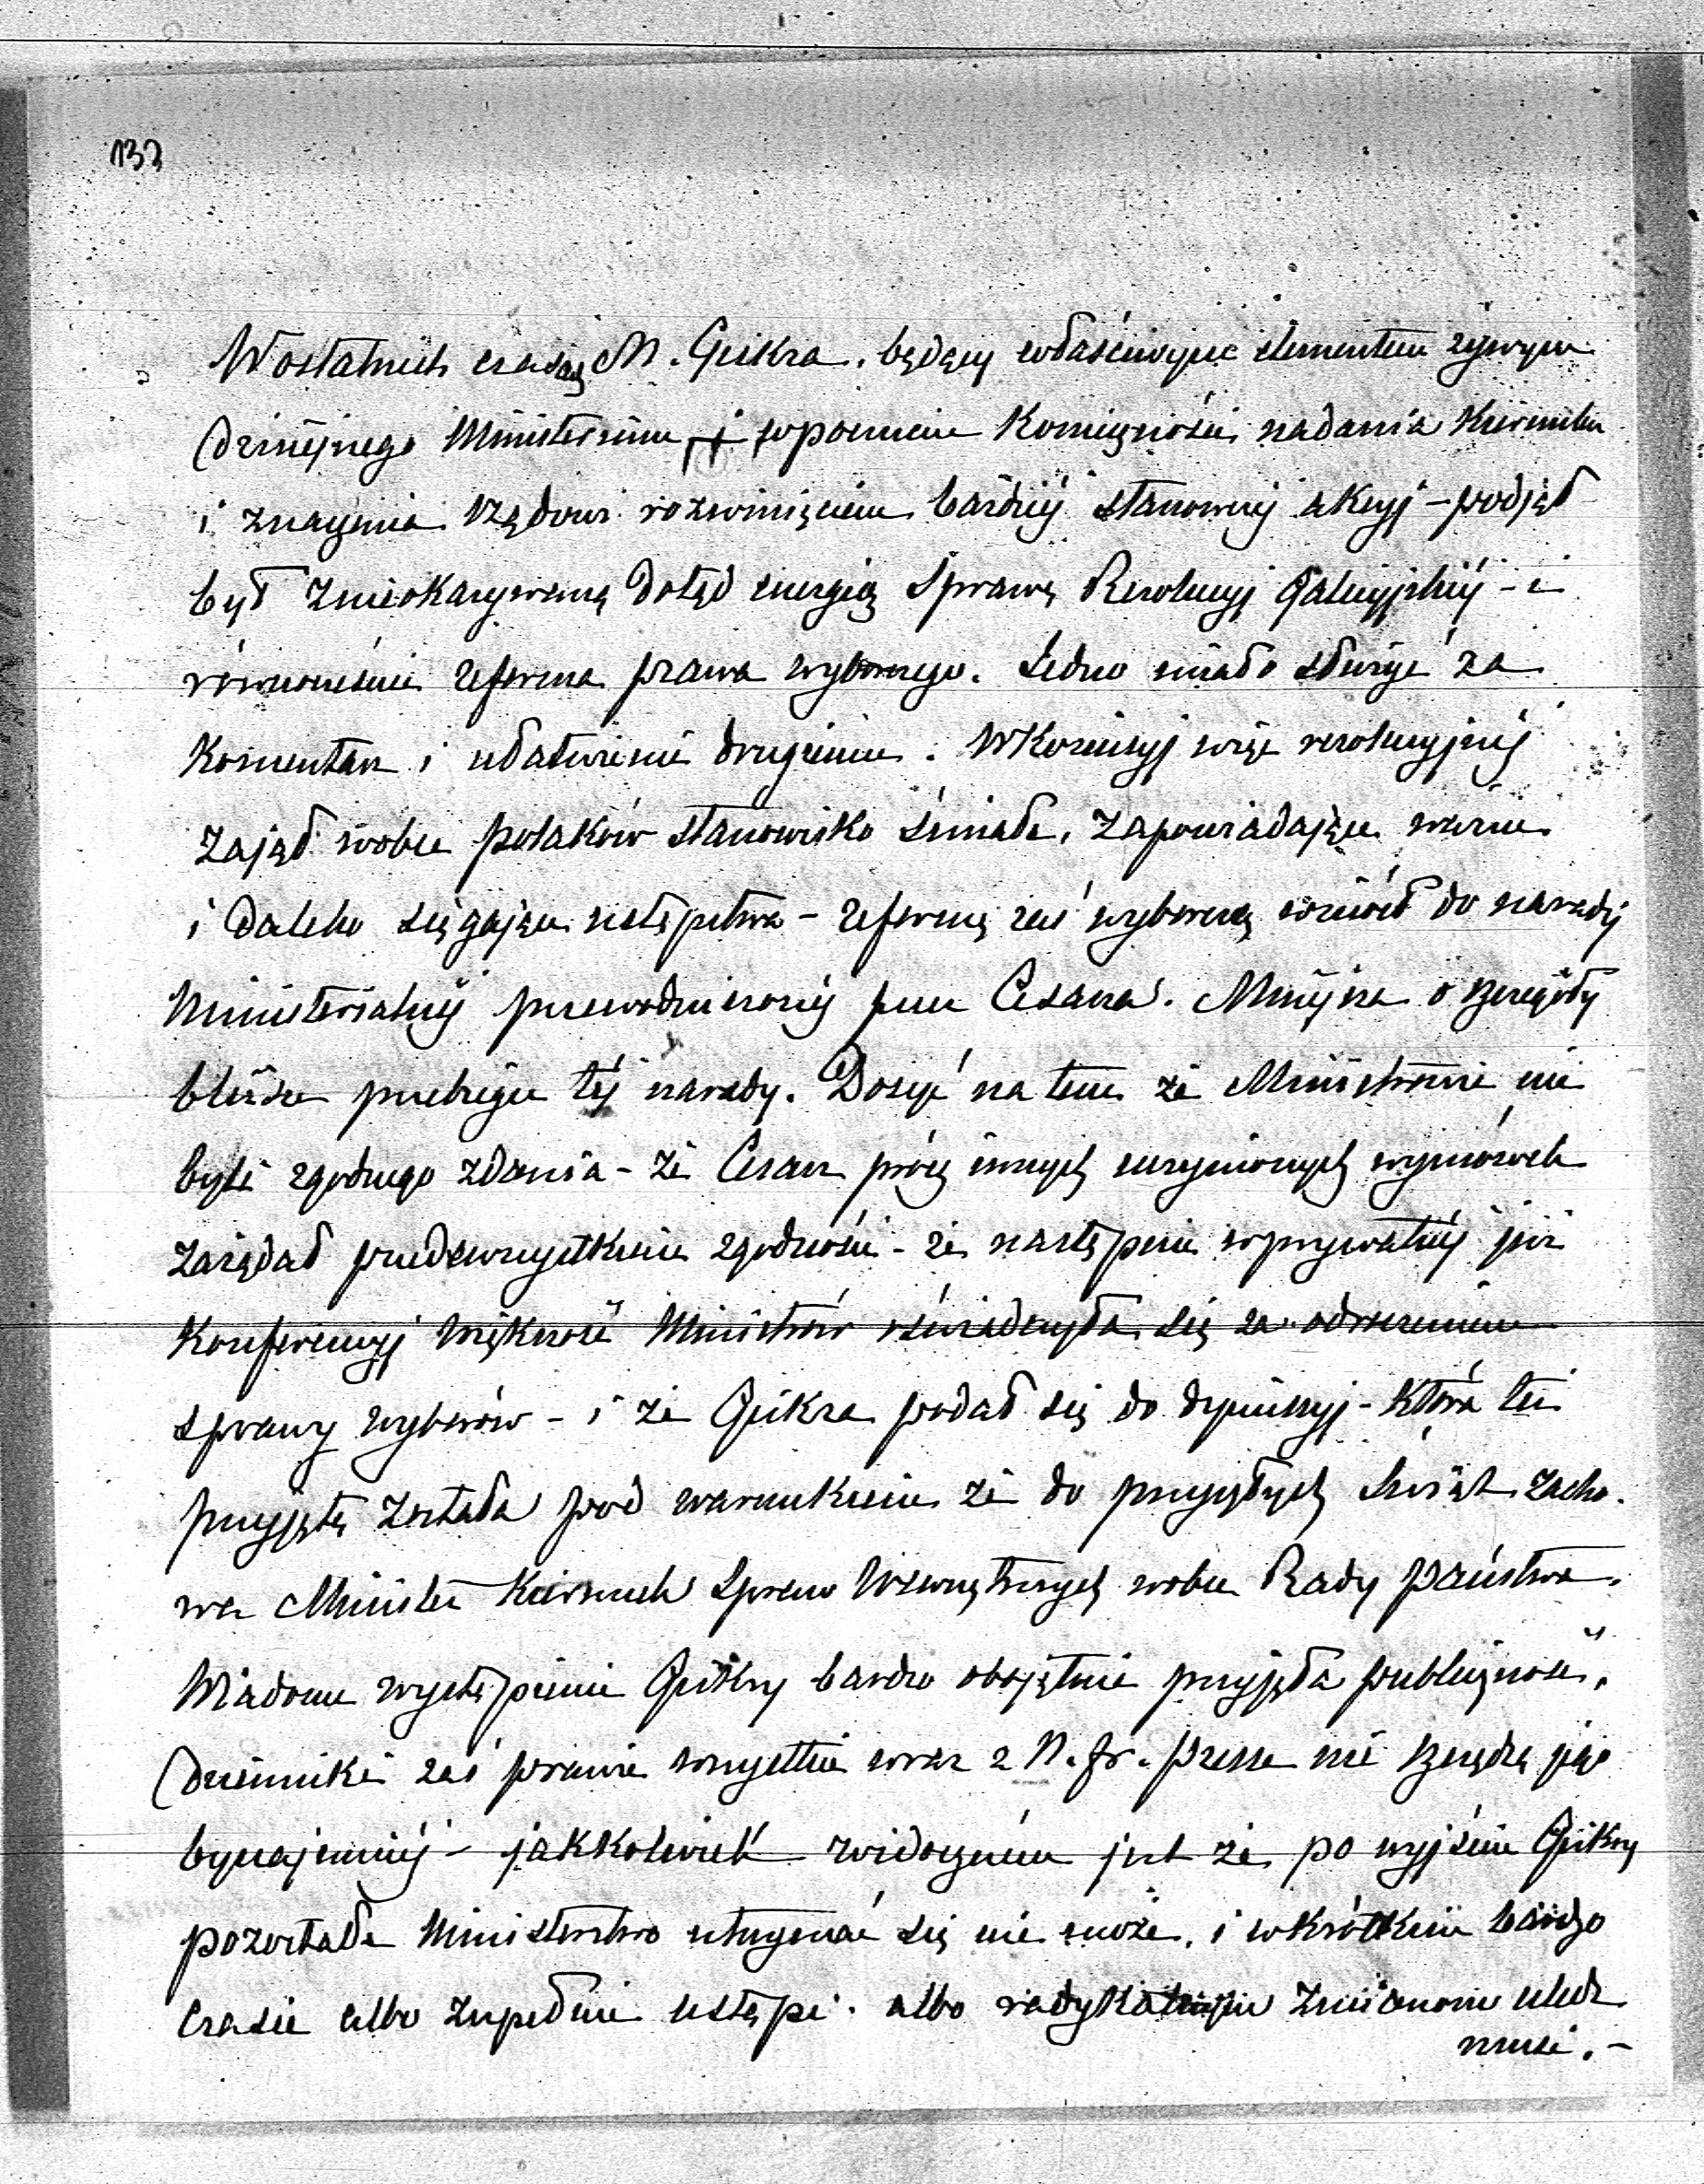 132
W ostatnich czasach M. Giskra, będący właściwym elementem żywym
dzisiejszego Ministerium, w poczuciu Konieczności nadania Kierunku
i znaczenia rządowi rozwinięciem bardziej stanowczej akcyj – podjął
był z nieokazywaną dotąd energią Sprawę Rezolucyj Galicyjskiéj – i
równocześnie reforma prawa wyborczego. Jedno miało służyć za
Komentarz i ułatwienie drugiemu. W Komisyj więc rezolucyjnéj
zajął wobec polaków stanowisko śmiałe, zapowiadające ważne
i daleko sięgające ustępstwa – reformę zaś wyborczą wniósł do narady
Ministerialnéj przewodniczonéj przez Cesarza. Mniejsza o szczegóły
bliższe przebiegu téj narady. Dosyć na tem że Ministrowie nie
byli zgodnego zdania – że Cesarz prócz innych uczynionych wymówek
zażądał przedewszystkiem zgodności – że następnie w prywatnéj już
Konferencyj większość Ministrów oświadczyła się za odroczeniem
sprawy wyborów – i że Giskra podał się do dymissyj – która też
przyjętą została pod warunkiem że do przyszłych Świąt zacho-
wa Minister Kierunek Spraw Wewnętrznych wobec Rady państwa.
Wiadome wystąpienie Giskry bardzo obojętnie przyjęła publiczność,
dzienniki zaś prawie wszystkie wraz z N. fr. presse nie szczędzą jego
bynajmniéj – jakkolwiek widocznem jest że po wyjściu Giskry
pozostałe Ministerstwo utrzymać się nie może, i w krótkim bardzo
czasie albo zupełnie ustąpi. albo radykalnym zmianom uledz
musi. –